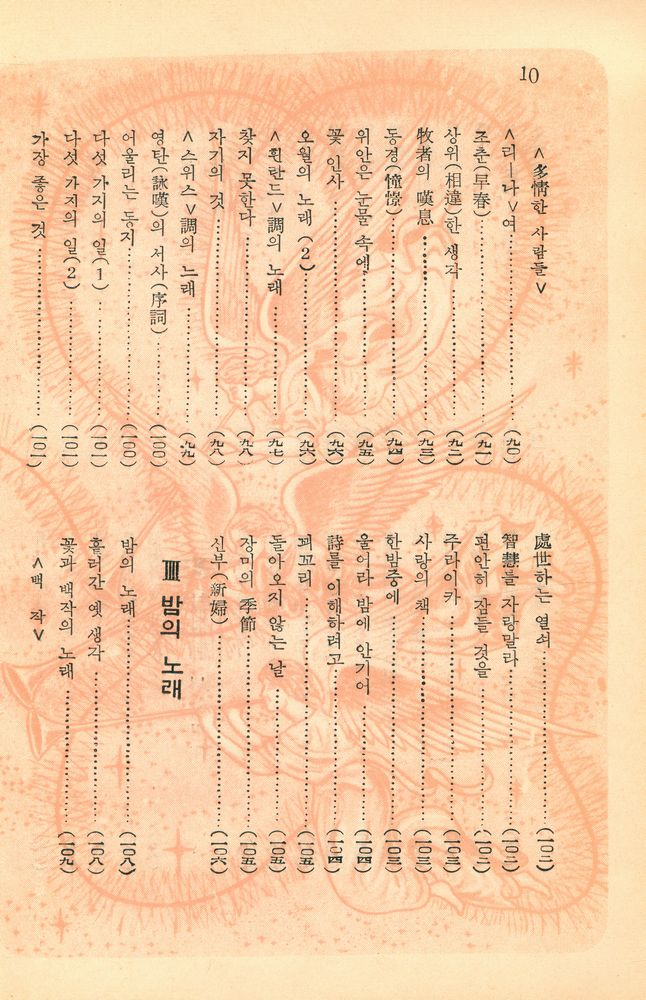 10
<多情한 사람들>
<리—나>여……(九〇)
조춘(早春)……(九一)
상위(相違)한 생각……(九二)
牧者의 嘆息……(九三)
동경(憧憬)……(九四)
위안은 눈물 속에……(九五)
꽃 인사……(九六)
오월의 노래(2)……(九六)
<휜란드>調의 노래……(九七)
찾지 못한다……(九八)
자기의 것……(九八)
<스위스>調의 노래……(九九)
영탄(詠嘆)의 서사(序詞)……(一〇〇)
어울리는 동지……(一〇〇)
다섯 가지의 일(1)……(一〇一)
다섯 가지의 일(2)……(一〇一)
가장 좋은 것……(一〇一)
處世하는 열쇠……(一〇二)
智慧를 자랑말라……(一〇二)
편안히 잠들 것을……(一〇二)
주라이카……(一〇三)
사랑의 책……(一〇三)
한밤중에……(一〇三)
울어라 밤에 안기어……(一〇四)
詩를 이해하려고……(一〇四)
꾀꼬리……(一〇五)
돌아오지 않는 날……(一〇五)
장미의 季節……(一〇五)
신부(新婦)……(一〇六)
Ⅲ 밤의 노래
밤의 노래……(一〇八)
흘러간 옛 생각……(一〇八)
꽃과 백작의 노래……(一〇九)
<백 작>